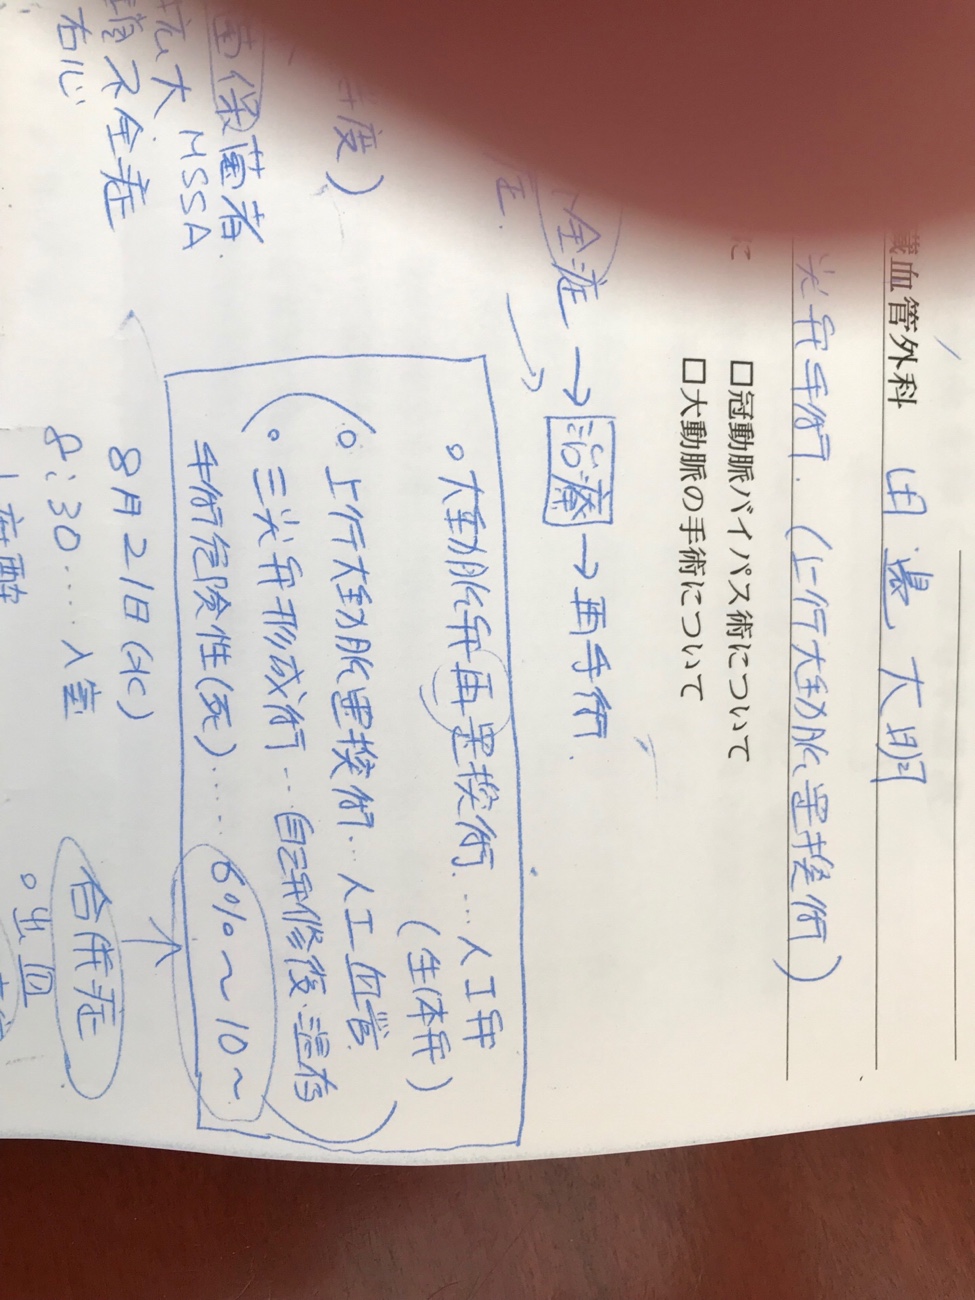 臓血管外科 田邊 大明
尖弁手術. (上行大動脈置換術)
に
□冠動脈バイパス術について
□大動脈の手術について
全症 → 治療 → 再手術
症
。大動脈弁再置換術…人工弁
(生体弁)
。上行大動脈置換術…人工血管
。三尖弁形成術…自己弁修復、温存
手術危険性(死)……6%〜10〜
度)
保菌者
拡大 MSSA
不全症
右心
8月21日(火)
8:30…入室
合併症
。出血
麻酔